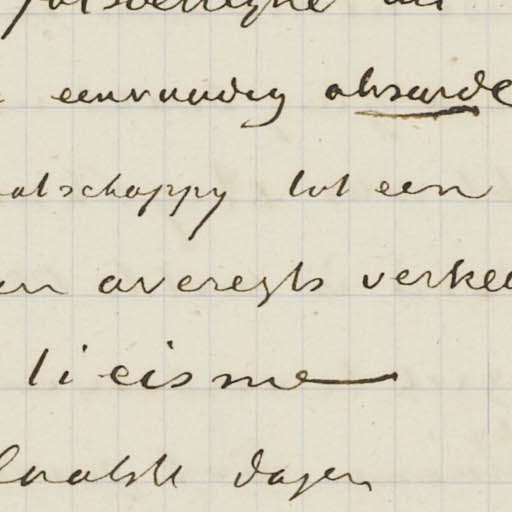 eenvoudig absurde
atschappy tot een
en averegts verkee
ticisme
laatste dagen